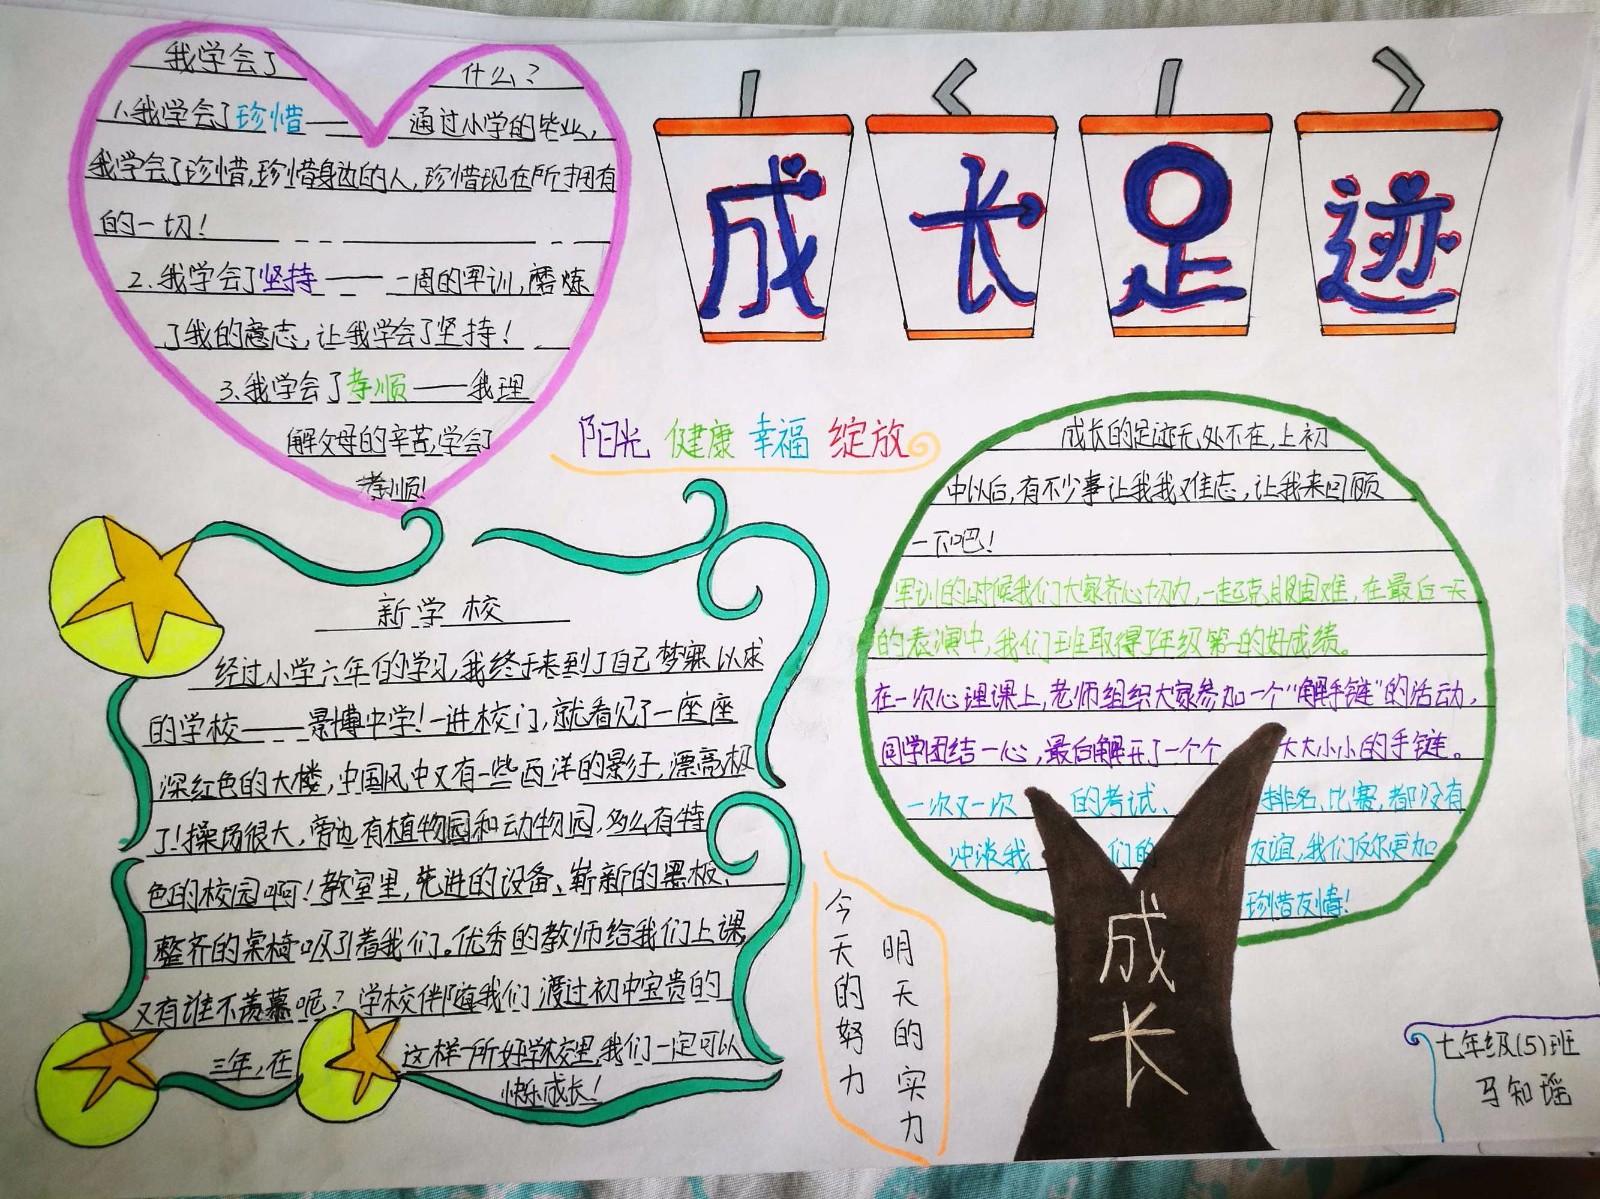 成长足迹
我学会了 什么？
1.我学会了珍惜—— 通过小学的毕业，
我学会了珍惜，珍惜身边的人，珍惜现在所拥有
的一切！
2.我学会了坚持—— 一周的军训，磨炼
了我的意志，让我学会了坚持！
3.我学会了孝顺——我理
解父母的辛苦，学会了
孝顺！
阳光 健康 幸福 绽放
新学校
经过小学六年的学习，我终于来到了自己梦寐以求
的学校——景博中学！一进校门，就看见了一座座
深红色的大楼，中国风中又有一些西洋的影子，漂亮极
了！操场很大，旁边有植物园和动物园，多么有特
色的校园啊！教室里，先进的设备、崭新的黑板、
整齐的桌椅吸引着我们。优秀的教师给我们上课，
又有谁不羡慕呢？学校伴随我们渡过初中宝贵的
三年，在这样一所好学校里，我们一定可以
快乐成长！
成长的足迹无处不在，上初
中以后，有不少事让我我难忘，让我来回顾
一下吧！
军训的时候我们大家齐心协力，一起克服困难，在最后一天
的表演中，我们班取得了年级第一的好成绩。
在一次心理课上，老师组织大家参加一个“解手链”的活动，
同学团结一心，最后解开了一个个大大小小的手链。
一次又一次的考试、排名、比赛，都没有
冲淡我们的友谊，我们反而更加
珍惜友情！
成长
今天的努力
明天的实力
七年级(5)班
马知瑶